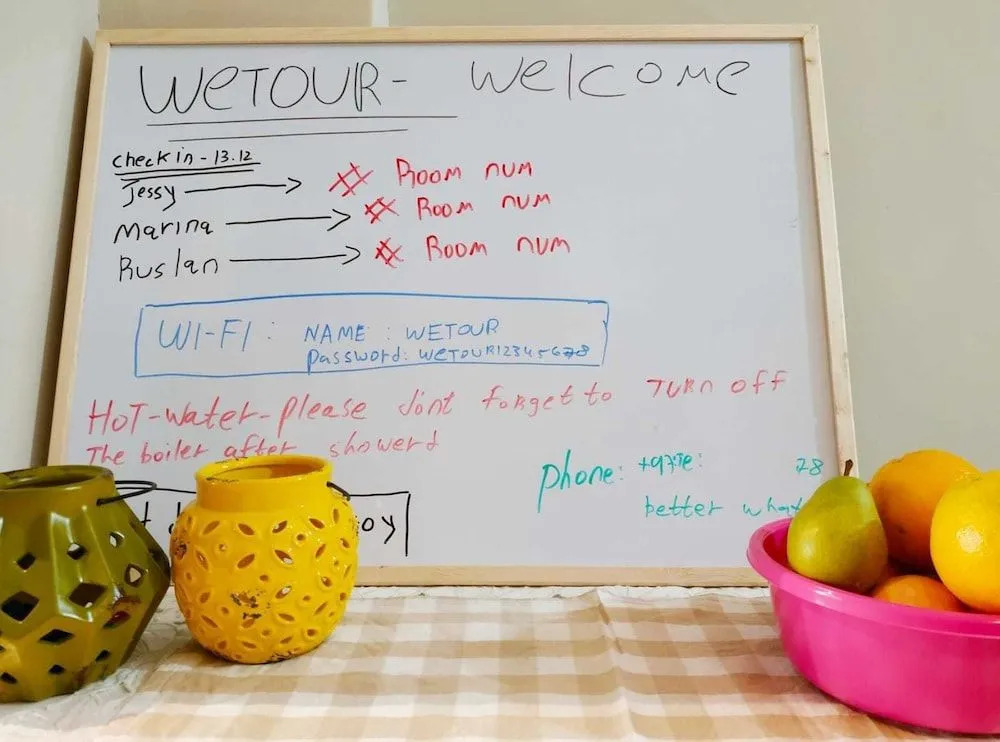 WeTOUR- Welcome
Check in - 13.12
Jessy → # Room num
Marina → # Room num
Ruslan → # Room num
WI-FI: NAME: WETOUR
password: WeTOUR12345678
HOT-Water-please dont forget to TURN off
The boiler after showerd
phone: 78
better